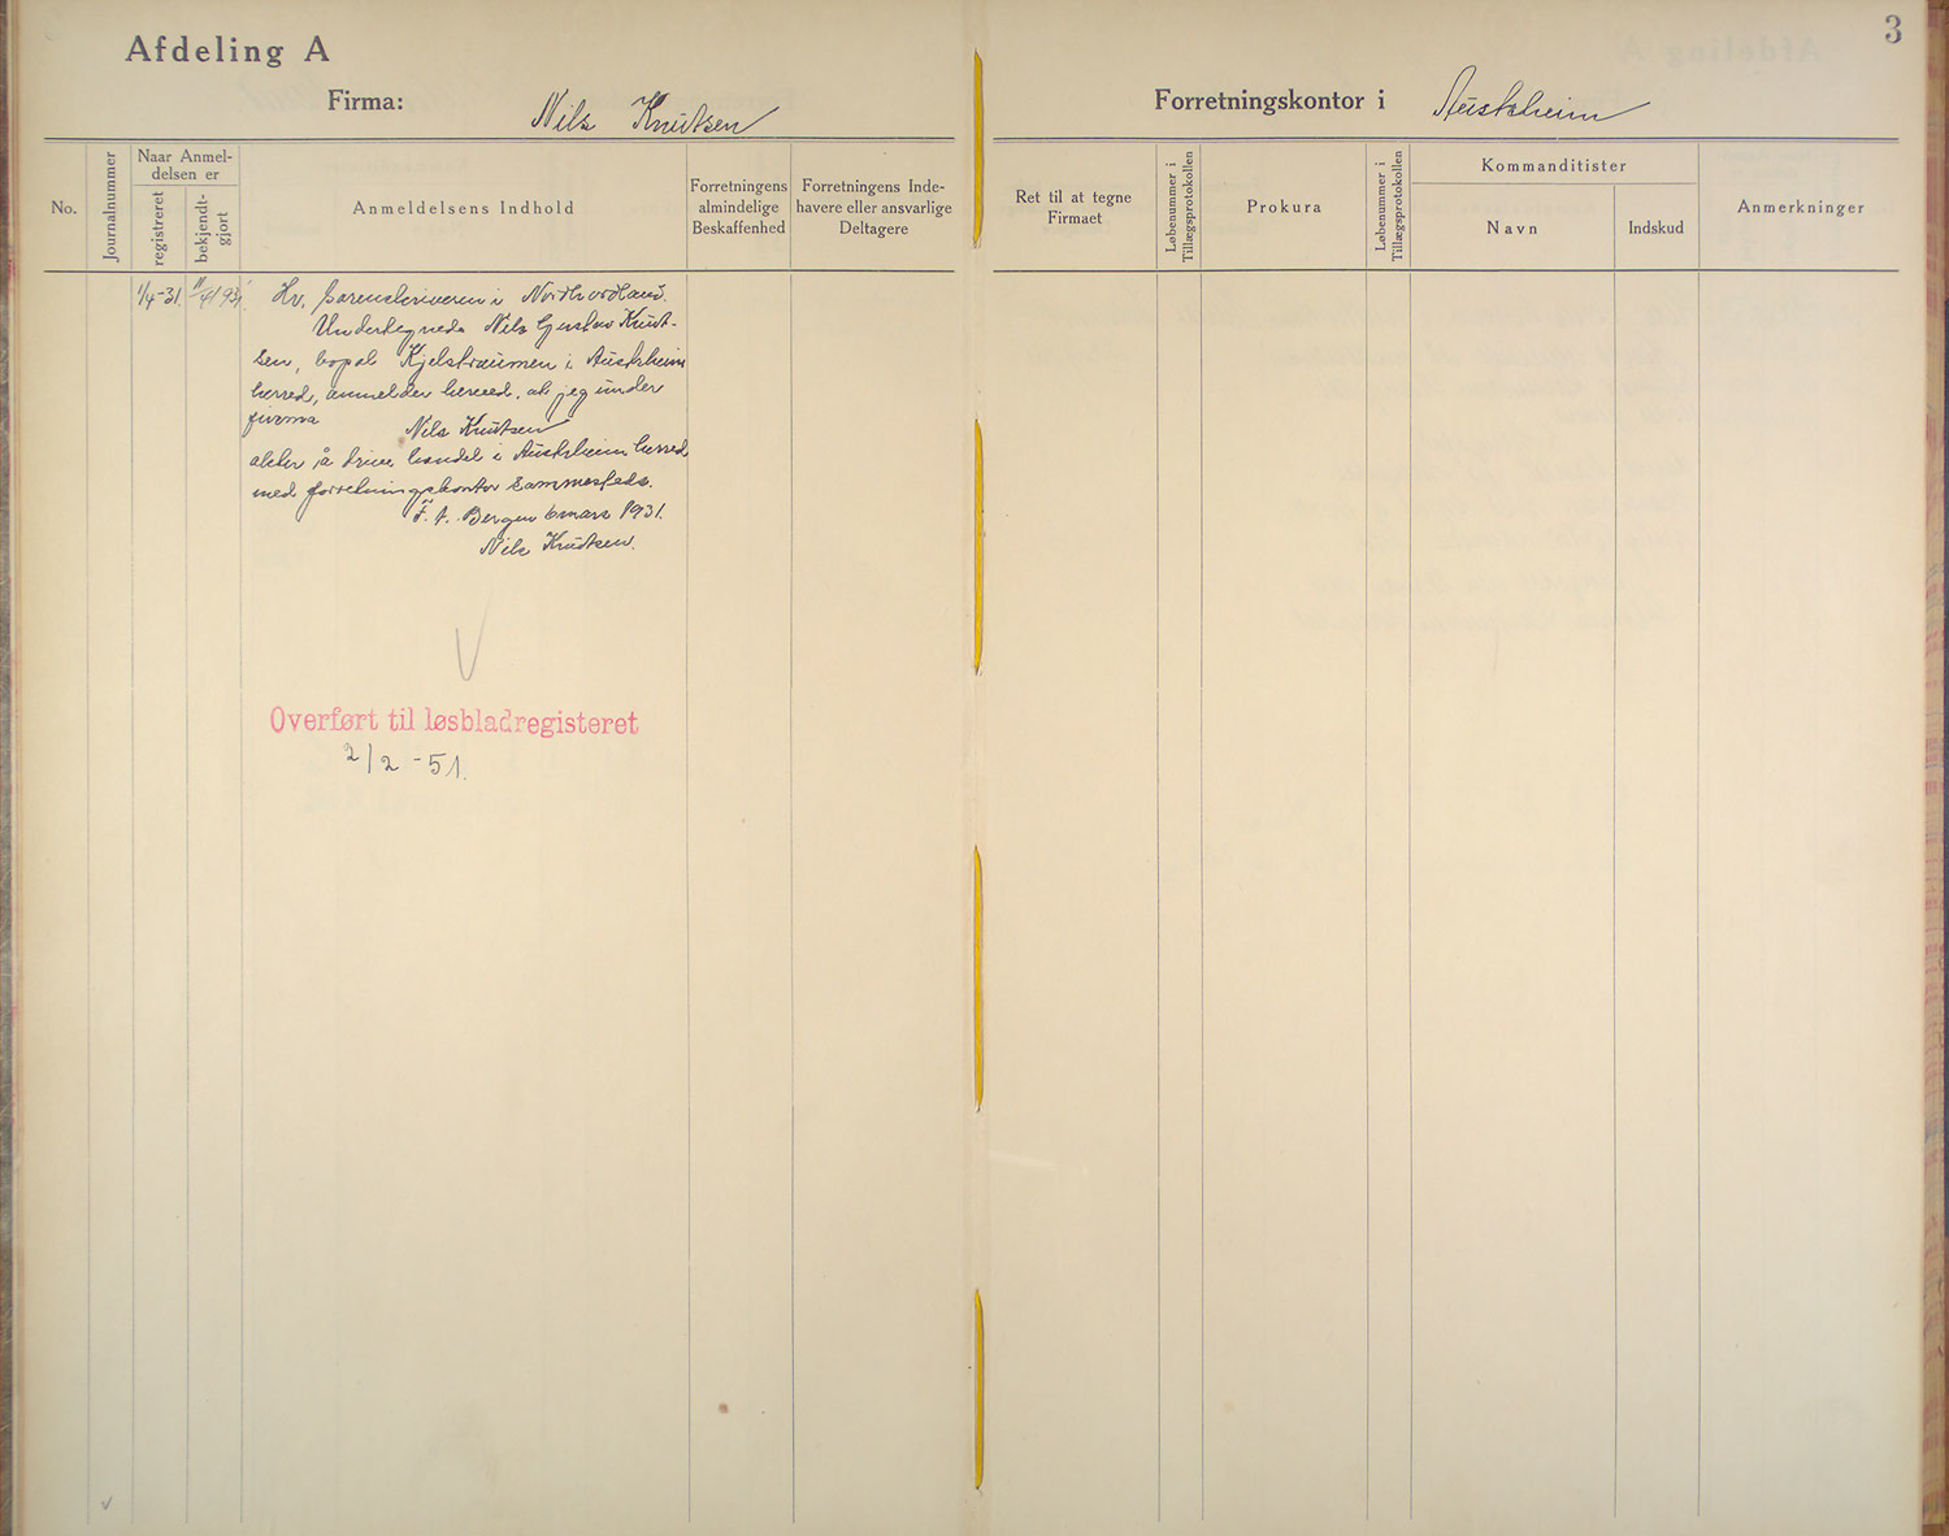 3
Afdeling A
Firma: Nils Knutsen
Forretningskontor i Austrheim
No.
Journalnummer
Naar Anmel-
delsen er
registreret
bekjendt-
gjort
Anmeldelsens Indhold
Forretningens
almindelige
Beskaffenhed
Forretningens Inde-
havere eller ansvarlige
Deltagere
Ret til at tegne
Firmaet
Løbenummer i
Tillægsprotokollen
Prokura
Løbenummer i
Tillægsprotokollen
Kommanditister
Navn
Indskud
Anmerkninger
1/4-31.
11/4 1931
Hr. sorenskriveren i Nordhordland.
Undertegnede Nils Gustav Knut-
sen, bopel Kjelstraumen i Austrheim
herred, anmelder herved, at jeg under
firma
Nils Knutsen
akter å drive handel i Austrheim herred
med forretningskontor sammesteds.
F. t. Bergen 6 mars 1931.
Nils Knutsen.
Overført til løsbladregisteret
2/2 - 51.